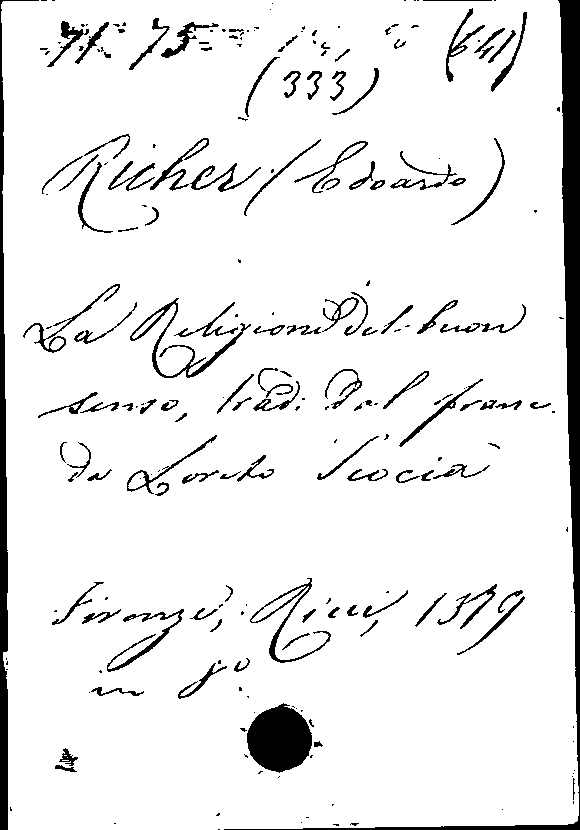 71 75 (641)
(333)
Richer (Edoardo)
La Religione del buon
senso, trad: dal franc.
da Loreto Scocia
Firenze, Ricci, 1879
in 8º